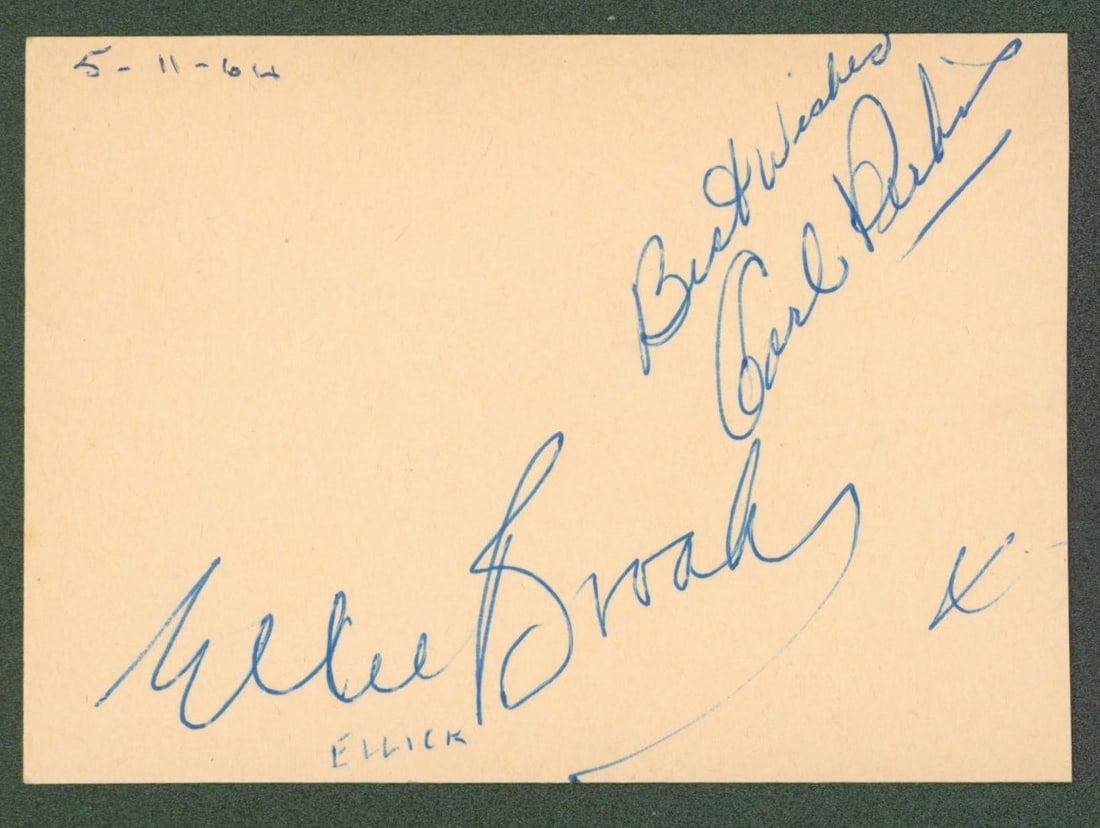 5-11-64
Best Wishes
Carl Perkins
Elkie Brooks
x
ELLICK